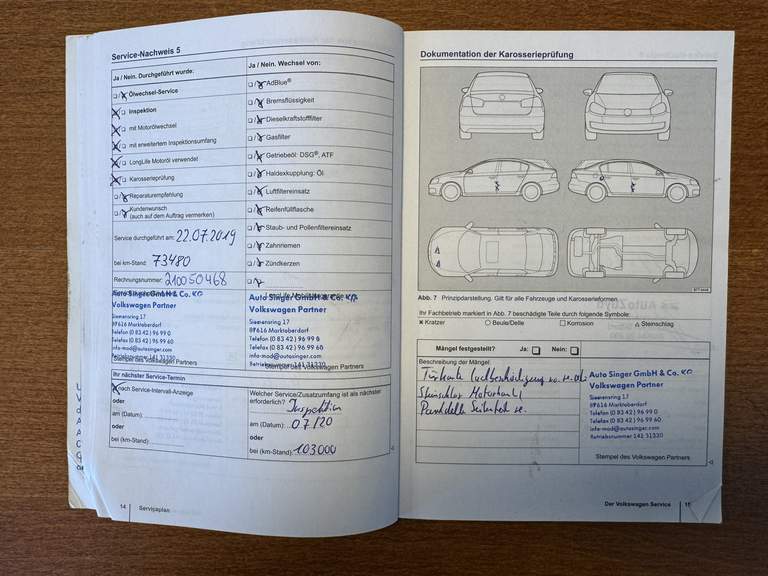 Service-Nachweis 5
Ja / Nein. Durchgeführt wurde:
Ölwechsel-Service
Inspektion
mit Motorölwechsel
mit erweitertem Inspektionsumfang
LongLife Motoröl verwendet
Karosserieprüfung
Reparaturempfehlung
Kundenwunsch
(auch auf dem Auftrag vermerken)
Service durchgeführt am: 22.07.2019
bei km-Stand: 73480
Rechnungsnummer: 210050468
Auto Singer GmbH & Co. KG
Volkswagen Partner
Siemensring 17
87616 Marktoberdorf
Telefon (0 83 42) 96 99 0
Telefax (0 83 42) 96 99 60
info-mod@autosinger.com
Betriebsnummer 141 31330
Stempel des Volkswagen Partners
Ja / Nein. Wechsel von:
AdBlue®
Bremsflüssigkeit
Dieselkraftstofffilter
Gasfilter
Getriebeöl: DSG®, ATF
Haldexkupplung: Öl
Luftfiltereinsatz
Reifenfüllflasche
Staub- und Pollenfiltereinsatz
Zahnriemen
Zündkerzen
Auto Singer GmbH & Co. KG
Volkswagen Partner
Siemensring 17
87616 Marktoberdorf
Telefon (0 83 42) 96 99 0
Telefax (0 83 42) 96 99 60
info-mod@autosinger.com
Betriebsnummer 141 31330
Stempel des Volkswagen Partners
Ihr nächster Service-Termin
nach Service-Intervall-Anzeige
oder
am (Datum):
oder
bei (km-Stand):
Welcher Service/Zusatzumfang ist als nächster
erforderlich? Inspektion
am (Datum): 07/20
oder
bei (km-Stand): 103000
14 Serviceplan
Dokumentation der Karosserieprüfung
Abb. 7 Prinzipdarstellung. Gilt für alle Fahrzeuge und Karosserieformen.
Ihr Fachbetrieb markiert in Abb. 7 beschädigte Teile durch folgende Symbole:
Kratzer Beule/Delle Korrosion Steinschlag
Mängel festgestellt? Ja: Nein:
Beschreibung der Mängel:
Türkante Lackbeschädigung
Steinschlag Motorhaube
Parkdelle Seitenteil
Auto Singer GmbH & Co. KG
Volkswagen Partner
Siemensring 17
87616 Marktoberdorf
Telefon (0 83 42) 96 99 0
Telefax (0 83 42) 96 99 60
info-mod@autosinger.com
Betriebsnummer 141 31330
Stempel des Volkswagen Partners
Der Volkswagen Service 15